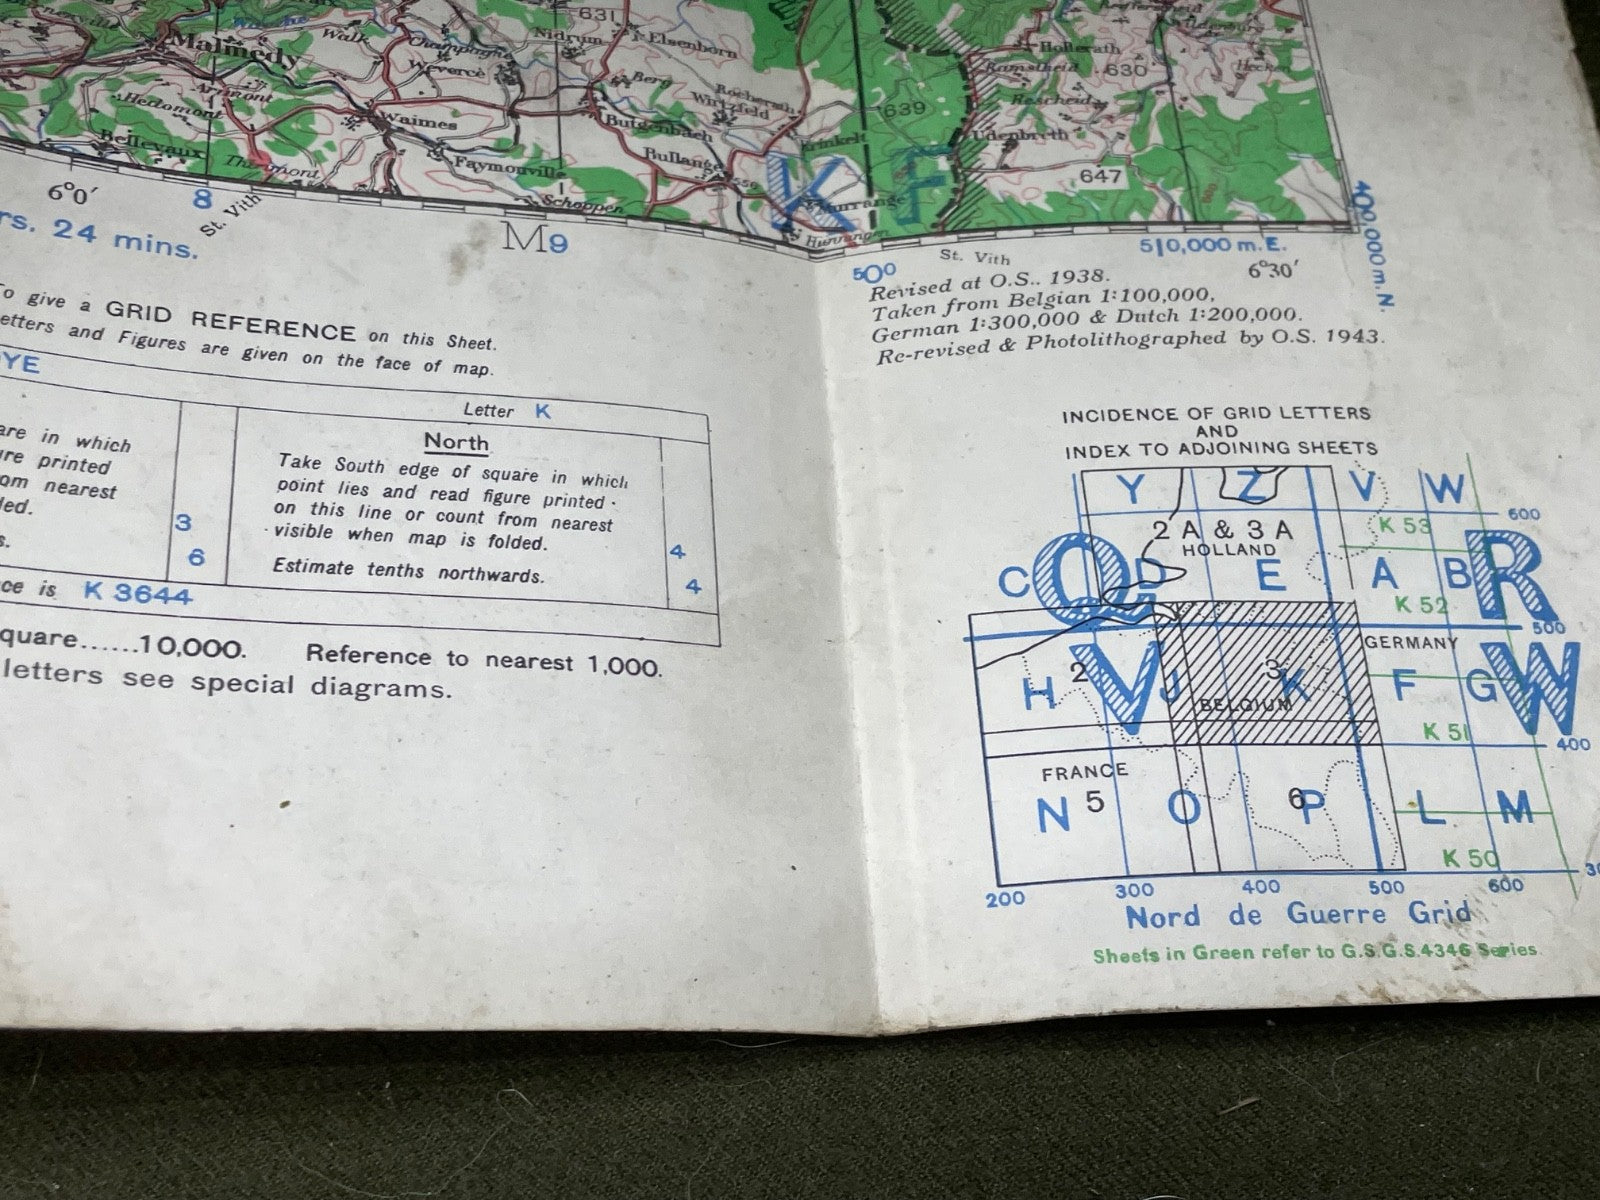 631
Malmedy
Walk
Champagne
Nidrum
Elsenborn
Weverce
Berg
Hollerath
630
Ramscheid
Arimont
Hedomont
Rocherath
Wirtzfeld
639
Rescheid
Waimes
Butgenbach
Krinkelt
Udenbreth
Bellevaux
Thirimont
Faymonville
Bullange
K
F
647
Schoppen
Murrange
Hunningen
6°0′
8
St. Vith
M9
500
St. Vith
510,000 m. E.
6°30′
400,000 m. N.
rs. 24 mins.
Revised at O.S.. 1938.
Taken from Belgian 1:100,000,
German 1:300,000 & Dutch 1:200,000.
Re-revised & Photolithographed by O.S. 1943.
To give a GRID REFERENCE on this Sheet.
etters and Figures are given on the face of map.
YE
Letter K
are in which
ure printed
om nearest
ded.
s.
3
6
North
Take South edge of square in which
point lies and read figure printed
on this line or count from nearest
visible when map is folded.
Estimate tenths northwards.
4
4
ce is K 3644
quare......10,000. Reference to nearest 1,000.
letters see special diagrams.
INCIDENCE OF GRID LETTERS
AND
INDEX TO ADJOINING SHEETS
Y Z V W
600
2 A & 3 A
HOLLAND
K 53
C Q D E A B R
K 52
500
GERMANY
H 2 V J 3 K F G W
BELGIUM
K 51
400
FRANCE
N 5 O 6 P L M
K 50
200 300 400 500 600
Nord de Guerre Grid
Sheets in Green refer to G.S.G.S.4346 Series.